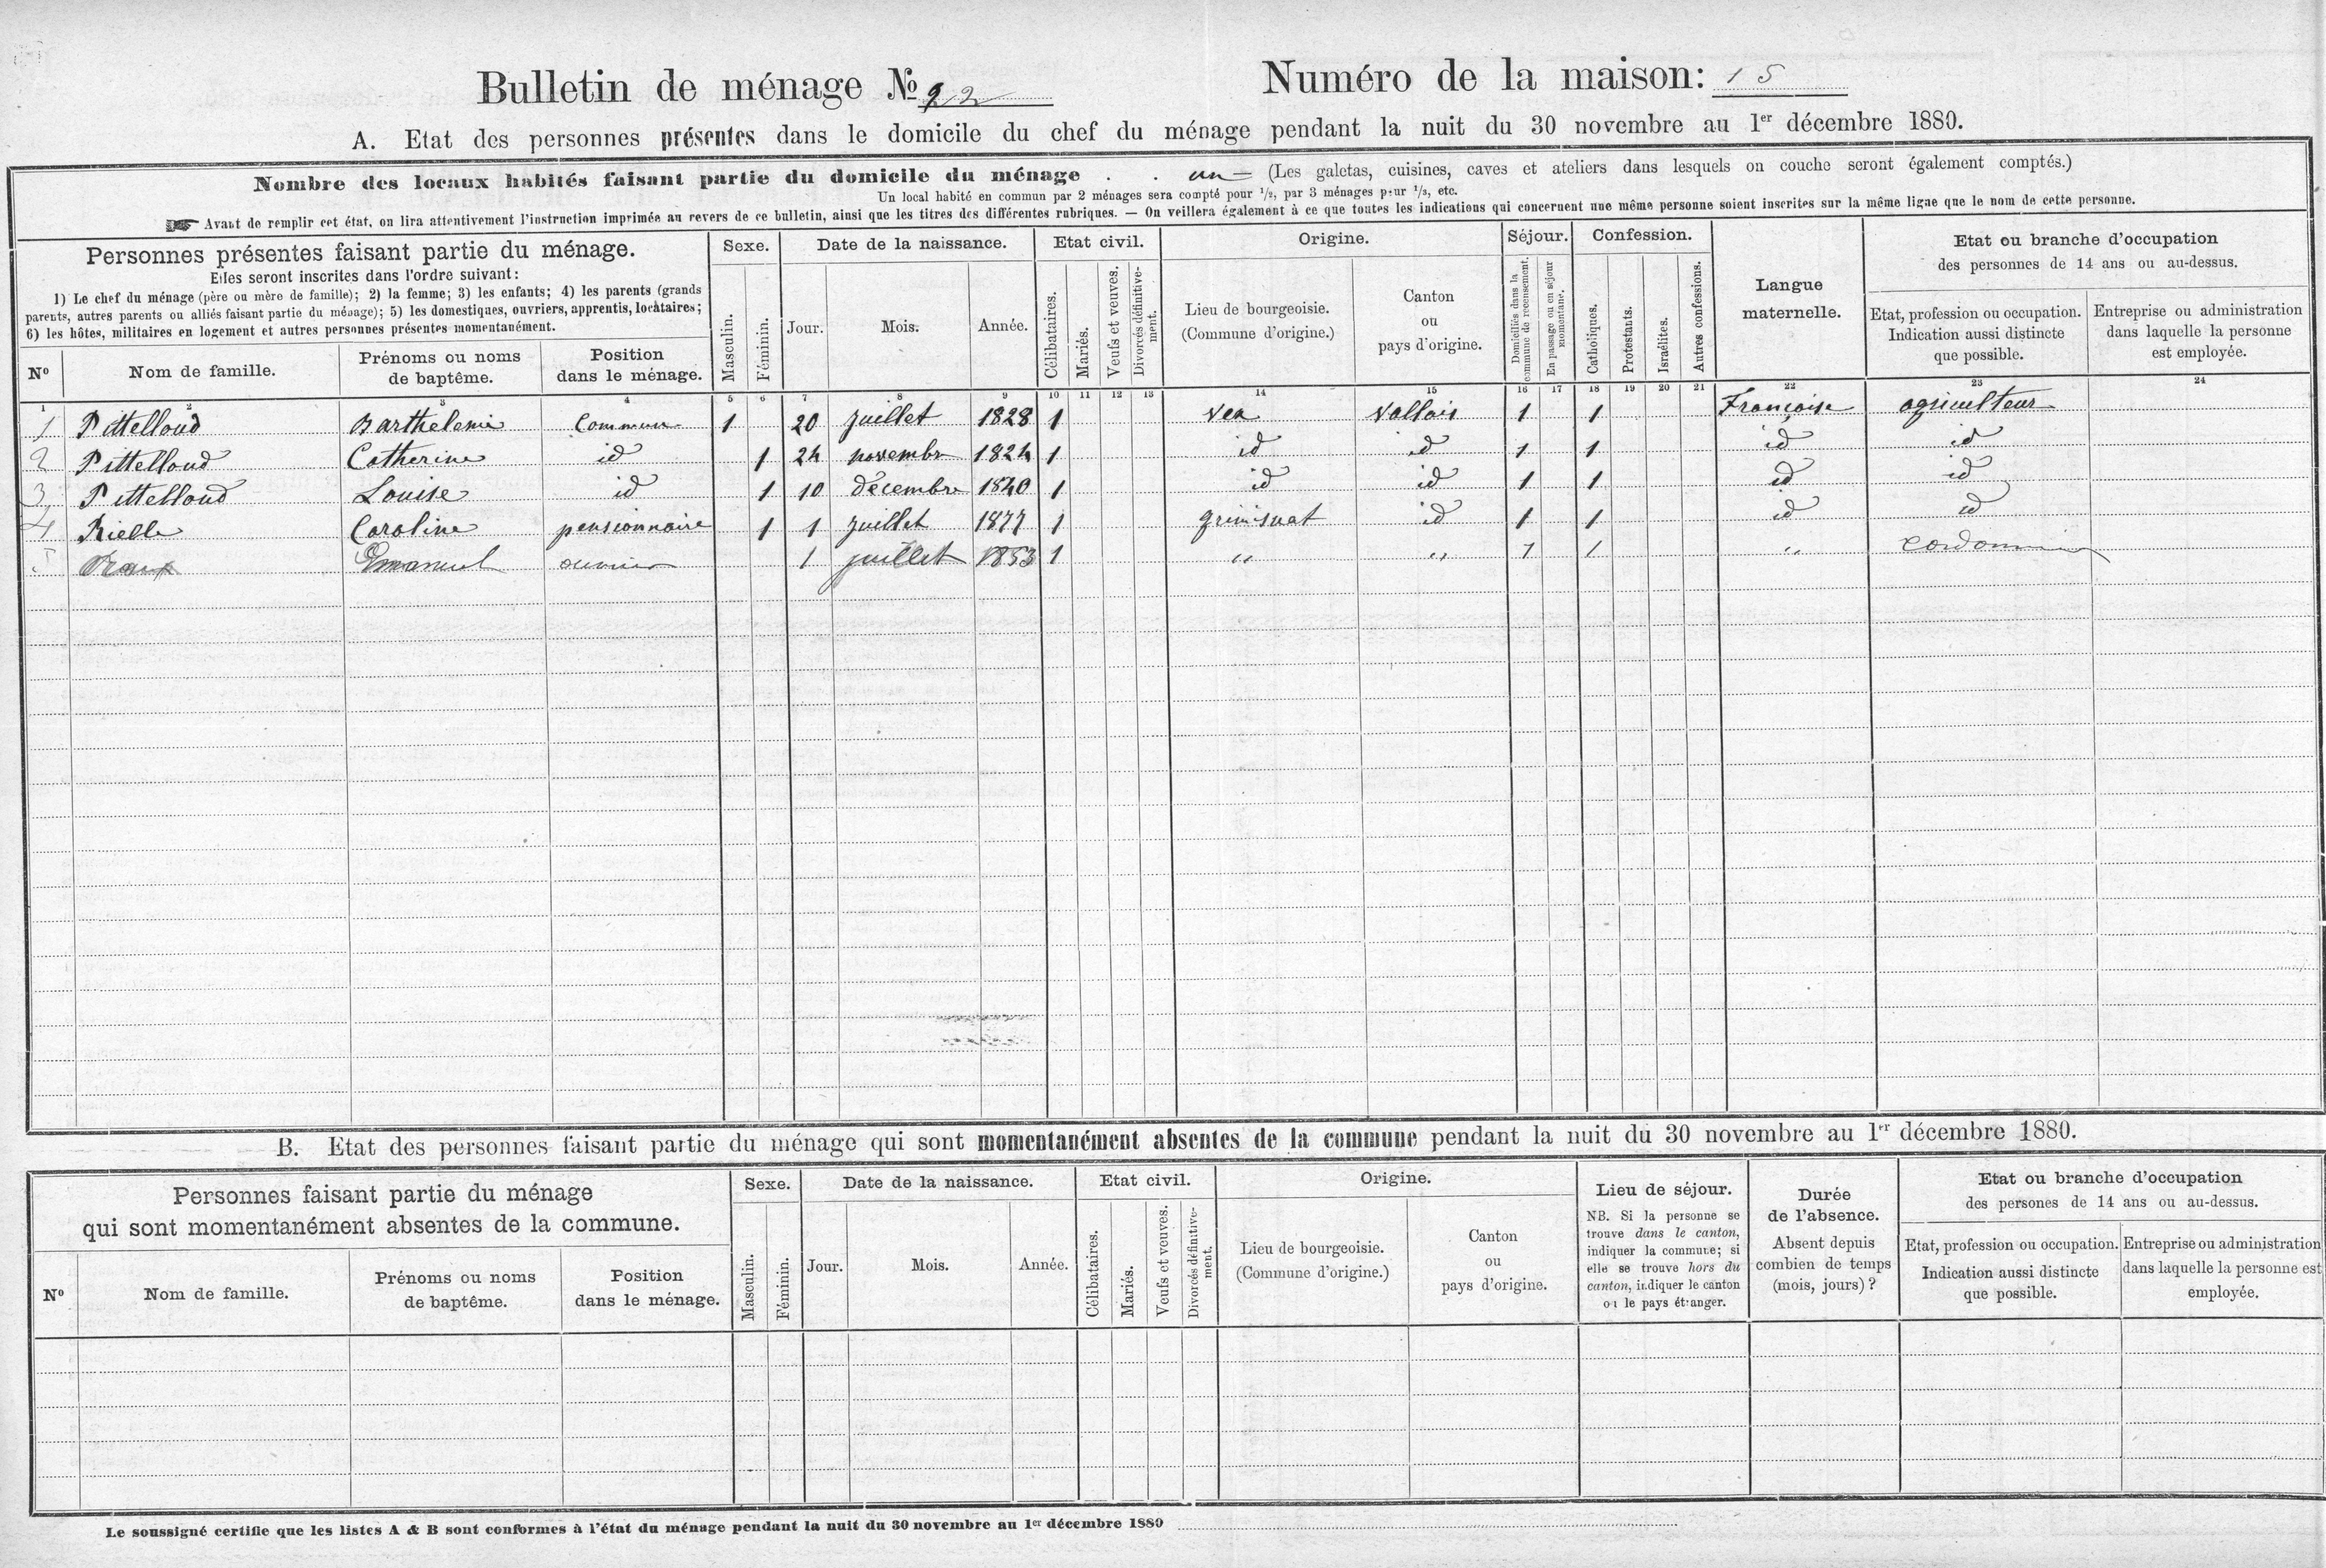 Bulletin de ménage № 22 Numéro de la maison: 15
A. Etat des personnes présentes dans le domicile du chef du ménage pendant la nuit du 30 novembre au 1er décembre 1880.
Nombre des locaux habités faisant partie du domicile du ménage . . un (Les galetas, cuisines, caves et ateliers dans lesquels on couche seront également comptés.)
Un local habité en commun par 2 ménages sera compté pour 1/2, par 3 ménages pour 1/3, etc.
☛ Avant de remplir cet état, on lira attentivement l'instruction imprimée au revers de ce bulletin, ainsi que les titres des différentes rubriques. — On veillera également à ce que toutes les indications qui concernent une même personne soient inscrites sur la même ligne que le nom de cette personne.
Personnes présentes faisant partie du ménage.
Elles seront inscrites dans l'ordre suivant:
1) Le chef du ménage (père ou mère de famille); 2) la femme; 3) les enfants; 4) les parents (grands
parents, autres parents ou alliés faisant partie du ménage); 5) les domestiques, ouvriers, apprentis, locataires;
6) les hôtes, militaires en logement et autres personnes présentes momentanément.
Nº Nom de famille. Prénoms ou noms de baptême. Position dans le ménage.
Sexe. Masculin. Féminin.
Date de la naissance. Jour. Mois. Année.
Etat civil. Célibataires. Mariés. Veufs et veuves. Divorcés définitivement.
Origine. Lieu de bourgeoisie. (Commune d'origine.) Canton ou pays d'origine.
Séjour. Domiciliés dans la commune de recensement. En passage ou en séjour momentané.
Confession. Catholiques. Protestants. Israélites. Autres confessions.
Langue maternelle.
Etat ou branche d'occupation des personnes de 14 ans ou au-dessus.
Etat, profession ou occupation. Indication aussi distincte que possible.
Entreprise ou administration dans laquelle la personne est employée.
1 2 3 4 5 6 7 8 9 10 11 12 13 14 15 16 17 18 19 20 21 22 23 24
1 Pittelloud Barthelemie Commun 1 20 juillet 1828 1 Vex Vallais 1 1 Françoise agriculteur
2 Pittelloud Catherine id 1 24 novembre 1824 1 id id 1 1 id id
3 Pittelloud Louise id 1 10 décembre 1840 1 id id 1 1 id id
4 Rielle Caroline pensionnaire 1 1 juillet 1877 1 grimisuat id 1 1 id id
5 Emanuel ouvrier 1 juillet 1853 1 " " 1 1 "
B. Etat des personnes faisant partie du ménage qui sont momentanément absentes de la commune pendant la nuit du 30 novembre au 1er décembre 1880.
Personnes faisant partie du ménage
qui sont momentanément absentes de la commune.
Nº Nom de famille. Prénoms ou noms de baptême. Position dans le ménage.
Sexe. Masculin. Féminin.
Date de la naissance. Jour. Mois. Année.
Etat civil. Célibataires. Mariés. Veufs et veuves. Divorcés définitivement.
Origine. Lieu de bourgeoisie. (Commune d'origine.) Canton ou pays d'origine.
Lieu de séjour.
NB. Si la personne se
trouve dans le canton,
indiquer la commune; si
elle se trouve hors du
canton, indiquer le canton
ou le pays étranger.
Durée de l'absence.
Absent depuis combien de temps (mois, jours) ?
Etat ou branche d'occupation des persones de 14 ans ou au-dessus.
Etat, profession ou occupation. Indication aussi distincte que possible.
Entreprise ou administration dans laquelle la personne est employée.
Le soussigné certifie que les listes A & B sont conformes à l'état du ménage pendant la nuit du 30 novembre au 1er décembre 1880